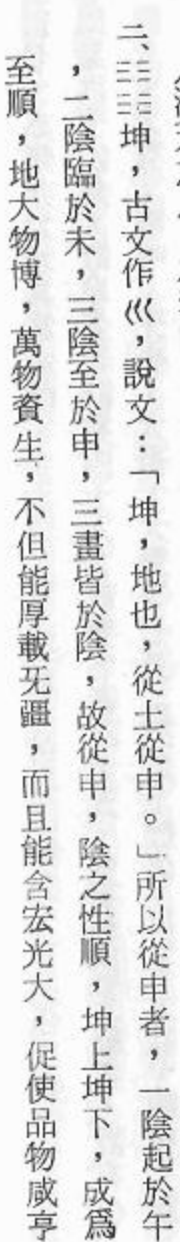 二、☷☷坤，古文作巛，說文：「坤，地也，從土從申。」所以從申者，一陰起於午
，二陰臨於未，三陰至於申，三畫皆於陰，故從申，陰之性順，坤上坤下，成爲
至順，地大物博，萬物資生，不但能厚載旡疆，而且能含宏光大，促使品物咸亨